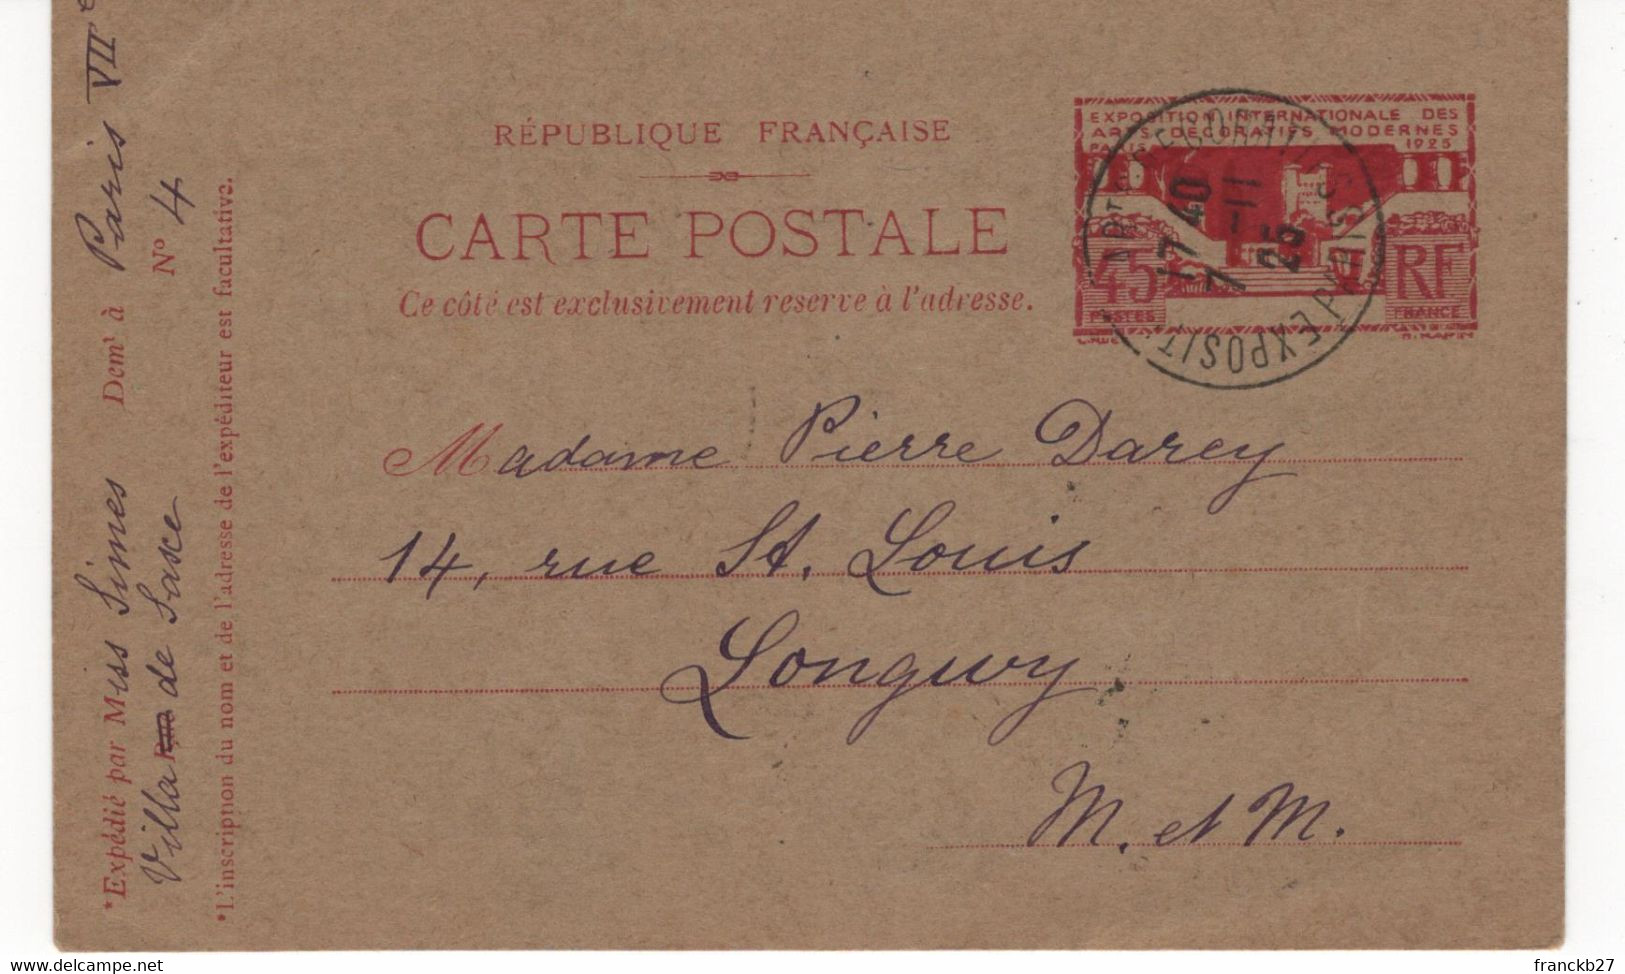 RÉPUBLIQUE FRANÇAISE
CARTE POSTALE
Ce côté est exclusivement reserve à l'adresse.
EXPOSITION INTERNATIONALE DES
ARTS DÉCORATIFS MODERNES
PARIS 1925
45 RF
POSTES FRANCE
17 40
7 -11
25
EXPOSIT PARIS
Madame Pierre Darcy
14, rue St. Louis
Longwy
M. et M.
*Expédié par Miss Simes Demt à Paris VIIe
Villa de Saxe No 4
*L'inscription du nom et de l'adresse de l'expéditeur est facultative.
franckb27